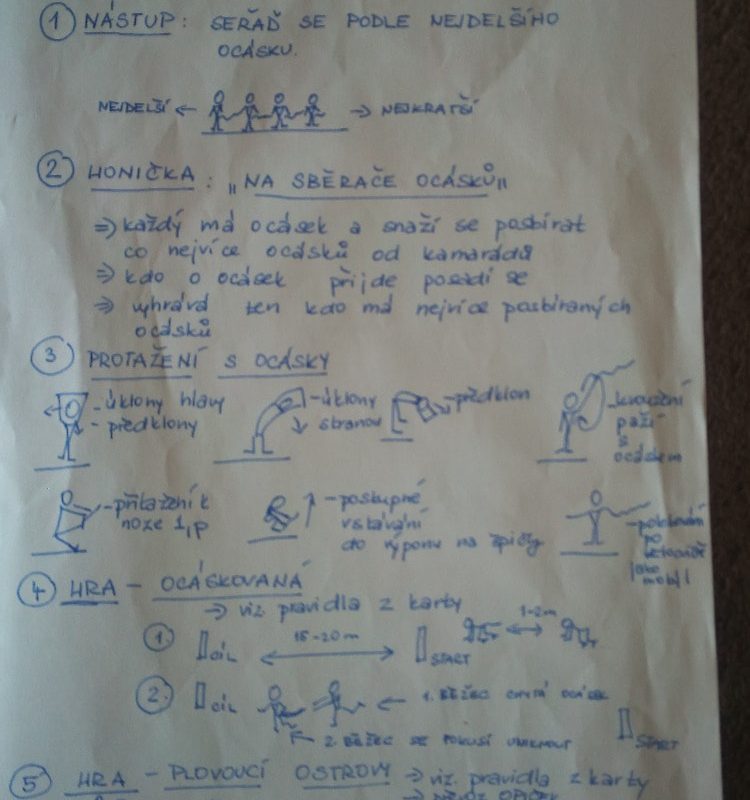 1 NÁSTUP: SEŘAĎ SE PODLE NEJDELŠÍHO
OCÁSKU.
NEJDELŠÍ ← → NEJKRATŠÍ
2 HONIČKA: „NA SBĚRAČE OCÁSKŮ„
⇒ každý má ocásek a snaží se posbírat
co nejvíce ocásků od kamarádů
⇒ kdo o ocásek přijde posadí se
⇒ vyhrává ten kdo má nejvíce posbíraných
ocásků
3 PROTAŽENÍ S OCÁSKY
- úklony hlavy
- předklony
- úklony
stranou
- předklon
- kroužení
paží
s
ocáskem
- přitažení k
noze l, p
- postupné
vstávání
do výponu na špičky
po
jako
motýl
4 HRA - OCÁSKOVANÁ
→ viz. pravidla z karty
1. CÍL 15-20m START 1-2m
2. CÍL ← 1. BĚŽEC CHYTÁ OCÁSEK
2. BĚŽEC SE POKUSÍ UNIKNOUT START
5 HRA - PLOVOUCÍ OSTROVY → viz. pravidla z karty